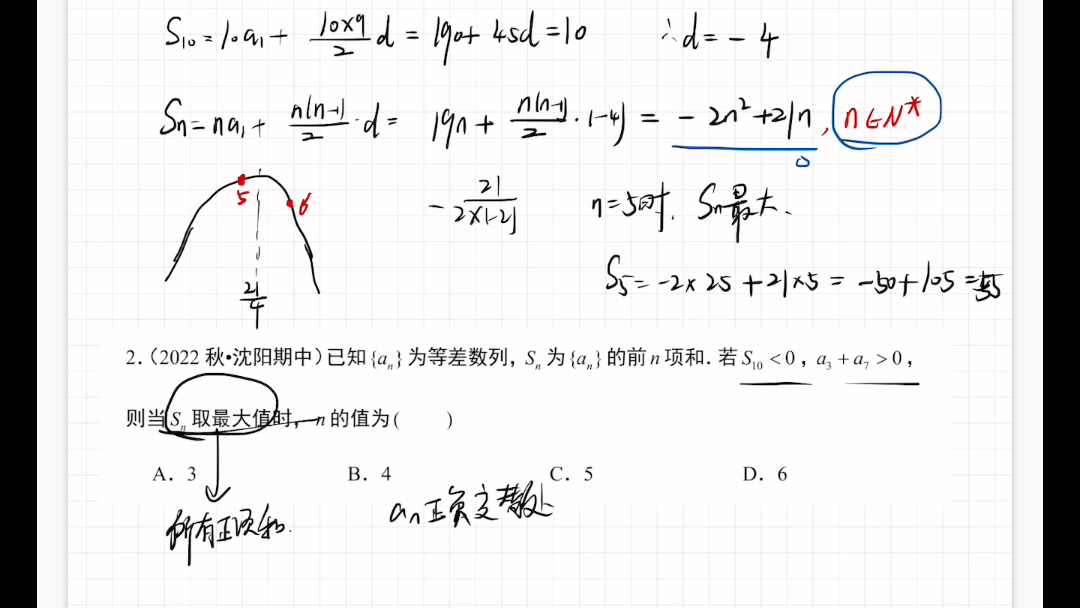 S₁₀=10a₁+ \frac{10×9}{2}d = 190+45d=10 ∴d=-4
Sn=na₁+ \frac{n(n-1)}{2}·d= 19n+ \frac{n(n-1)}{2}·(-4) = -2n²+21n, n∈N*
5 6 -\frac{21}{2×(-2)} n=5时. Sn最大.
\frac{21}{4} S₅=-2×25+21×5=-50+105=55
2.(2022 秋•沈阳期中)已知{aₙ}为等差数列, Sₙ为{aₙ}的前n项和.若S₁₀<0, a₃+a₇>0,
则当Sₙ取最大值时, n的值为( )
A. 3 B. 4 C. 5 D. 6
所有正项和. an正负交替处